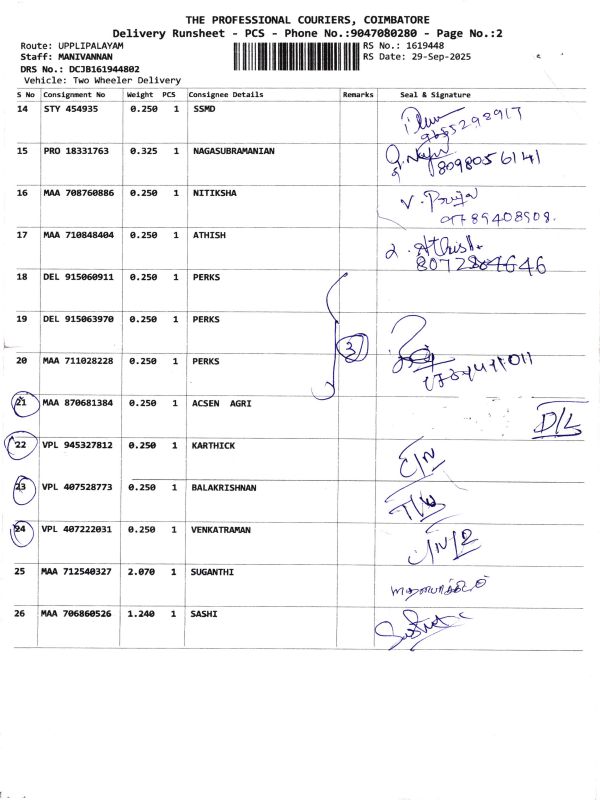 THE PROFESSIONAL COURIERS, COIMBATORE
Delivery Runsheet - PCS - Phone No.:9047080280 - Page No.:2
Route: UPPLIPALAYAM RS No.: 1619448
Staff: MANIVANNAN RS Date: 29-Sep-2025
DRS No.: DCJB161944802
Vehicle: Two Wheeler Delivery
S No Consignment No Weight PCS Consignee Details Remarks Seal & Signature
14 STY 454935 0.250 1 SSMD
15 PRO 18331763 0.325 1 NAGASUBRAMANIAN 8098056141
16 MAA 708760886 0.250 1 NITIKSHA V. Pooja
9789408908.
17 MAA 710848404 0.250 1 ATHISH Athish
18 DEL 915060911 0.250 1 PERKS
19 DEL 915063970 0.250 1 PERKS
3
20 MAA 711028228 0.250 1 PERKS
21 MAA 870681384 0.250 1 ACSEN AGRI D/L
22 VPL 945327812 0.250 1 KARTHICK C/N
23 VPL 407528773 0.250 1 BALAKRISHNAN
24 VPL 407222031 0.250 1 VENKATRAMAN
25 MAA 712540327 2.070 1 SUGANTHI
26 MAA 706860526 1.240 1 SASHI